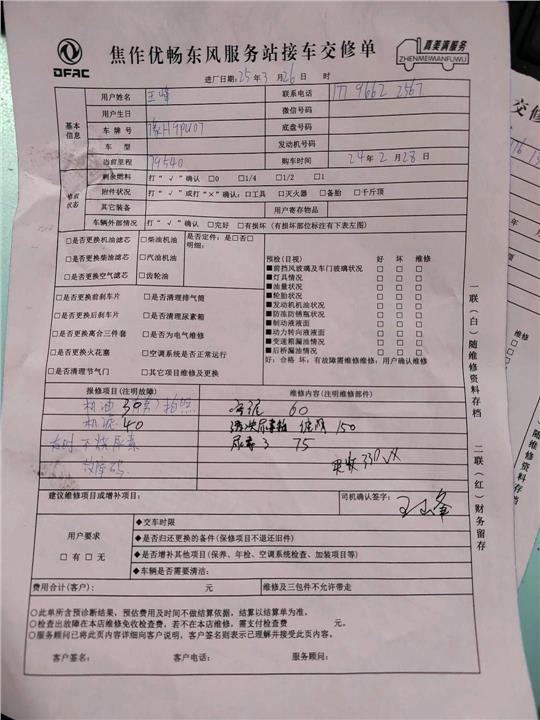 DFAC
焦作优畅东风服务站接车交修单
真美满服务
ZHENMEIMANFUWU
进厂日期:25年3月26日 时
基本信息
用户姓名 王峰 联系电话 177 9662 2567
用户生日 微信号码
车牌号 豫H9PU07 底盘号码
车型 发动机号码
当前里程 79540 购车时间 24年2月28日
检前状态
剩余燃料 打“√”确认 □0 □1/4 □1/2 □1
附件状况 打“√”或打“×”确认:□工具 □灭火器 □备胎 □千斤顶
其它装备 用户寄存物品
车辆外部情况 打“√”确认 □完好 □有损坏(有损坏部位标注有下表左图)
□是否更换机油滤芯 □柴油机油
□是否更换柴油滤芯 □汽油机油
□是否更换空气滤芯 □齿轮油
是否定件:是□否□
明细:
□是否更换前刹车片 □是否清理排气筒
□是否更换后刹车片 □是否清理尿素箱
□是否更换离合三件套 □是否为电气维修
□是否更换火花塞 □空调系统是否正常运行
□是否清理节气门 □其它项目维修及更换
预检(目视) 好 坏 维修
■前挡风玻璃及车门玻璃状况 □ □ □
■灯具情况 □ □ □
■油量状况 □ □ □
■轮胎状况 □ □ □
■发动机机油状况 □ □ □
■防冻防锈瓶状况 □ □ □
■制动液液面 □ □ □
■动力转向液液面 □ □ □
■变速箱漏油情况 □ □ □
■后桥漏油情况 □ □ □
好:合格 坏:有故障需维修 维修:用户确认维修
报修项目(注明故障) 维修内容(注明维修部件)
机油 拍照 60
机滤 40 150
有时不烧尿素 尿素3 75
故障码 实收330
建议维修项目或增补项目: 司机确认签字: 王峰
用户要求
□有 □无
◆交车时限
◆是否归还更换的备件(保修项目不退还旧件)
◆是否增补其他项目(保养、年检、空调系统检查、加装项目等)
◆车辆是否需要清洁:
费用合计(客户): 元 维修及三包件不允许带走
○此单所含预诊断结果,预估费用及时间不做结算依据,结算以结算单为准。
○检查出故障在本店维修免收检查费,若不在本店维修,需支付检查费 元。
○服务顾问已将此页内容详细向客户说明,客户签名则表示已理解并接受此页内容。
客户签名: 客户电话: 服务顾问:
一联(白)随维修资料存档
二联(红)财务留存
交修
年
维修